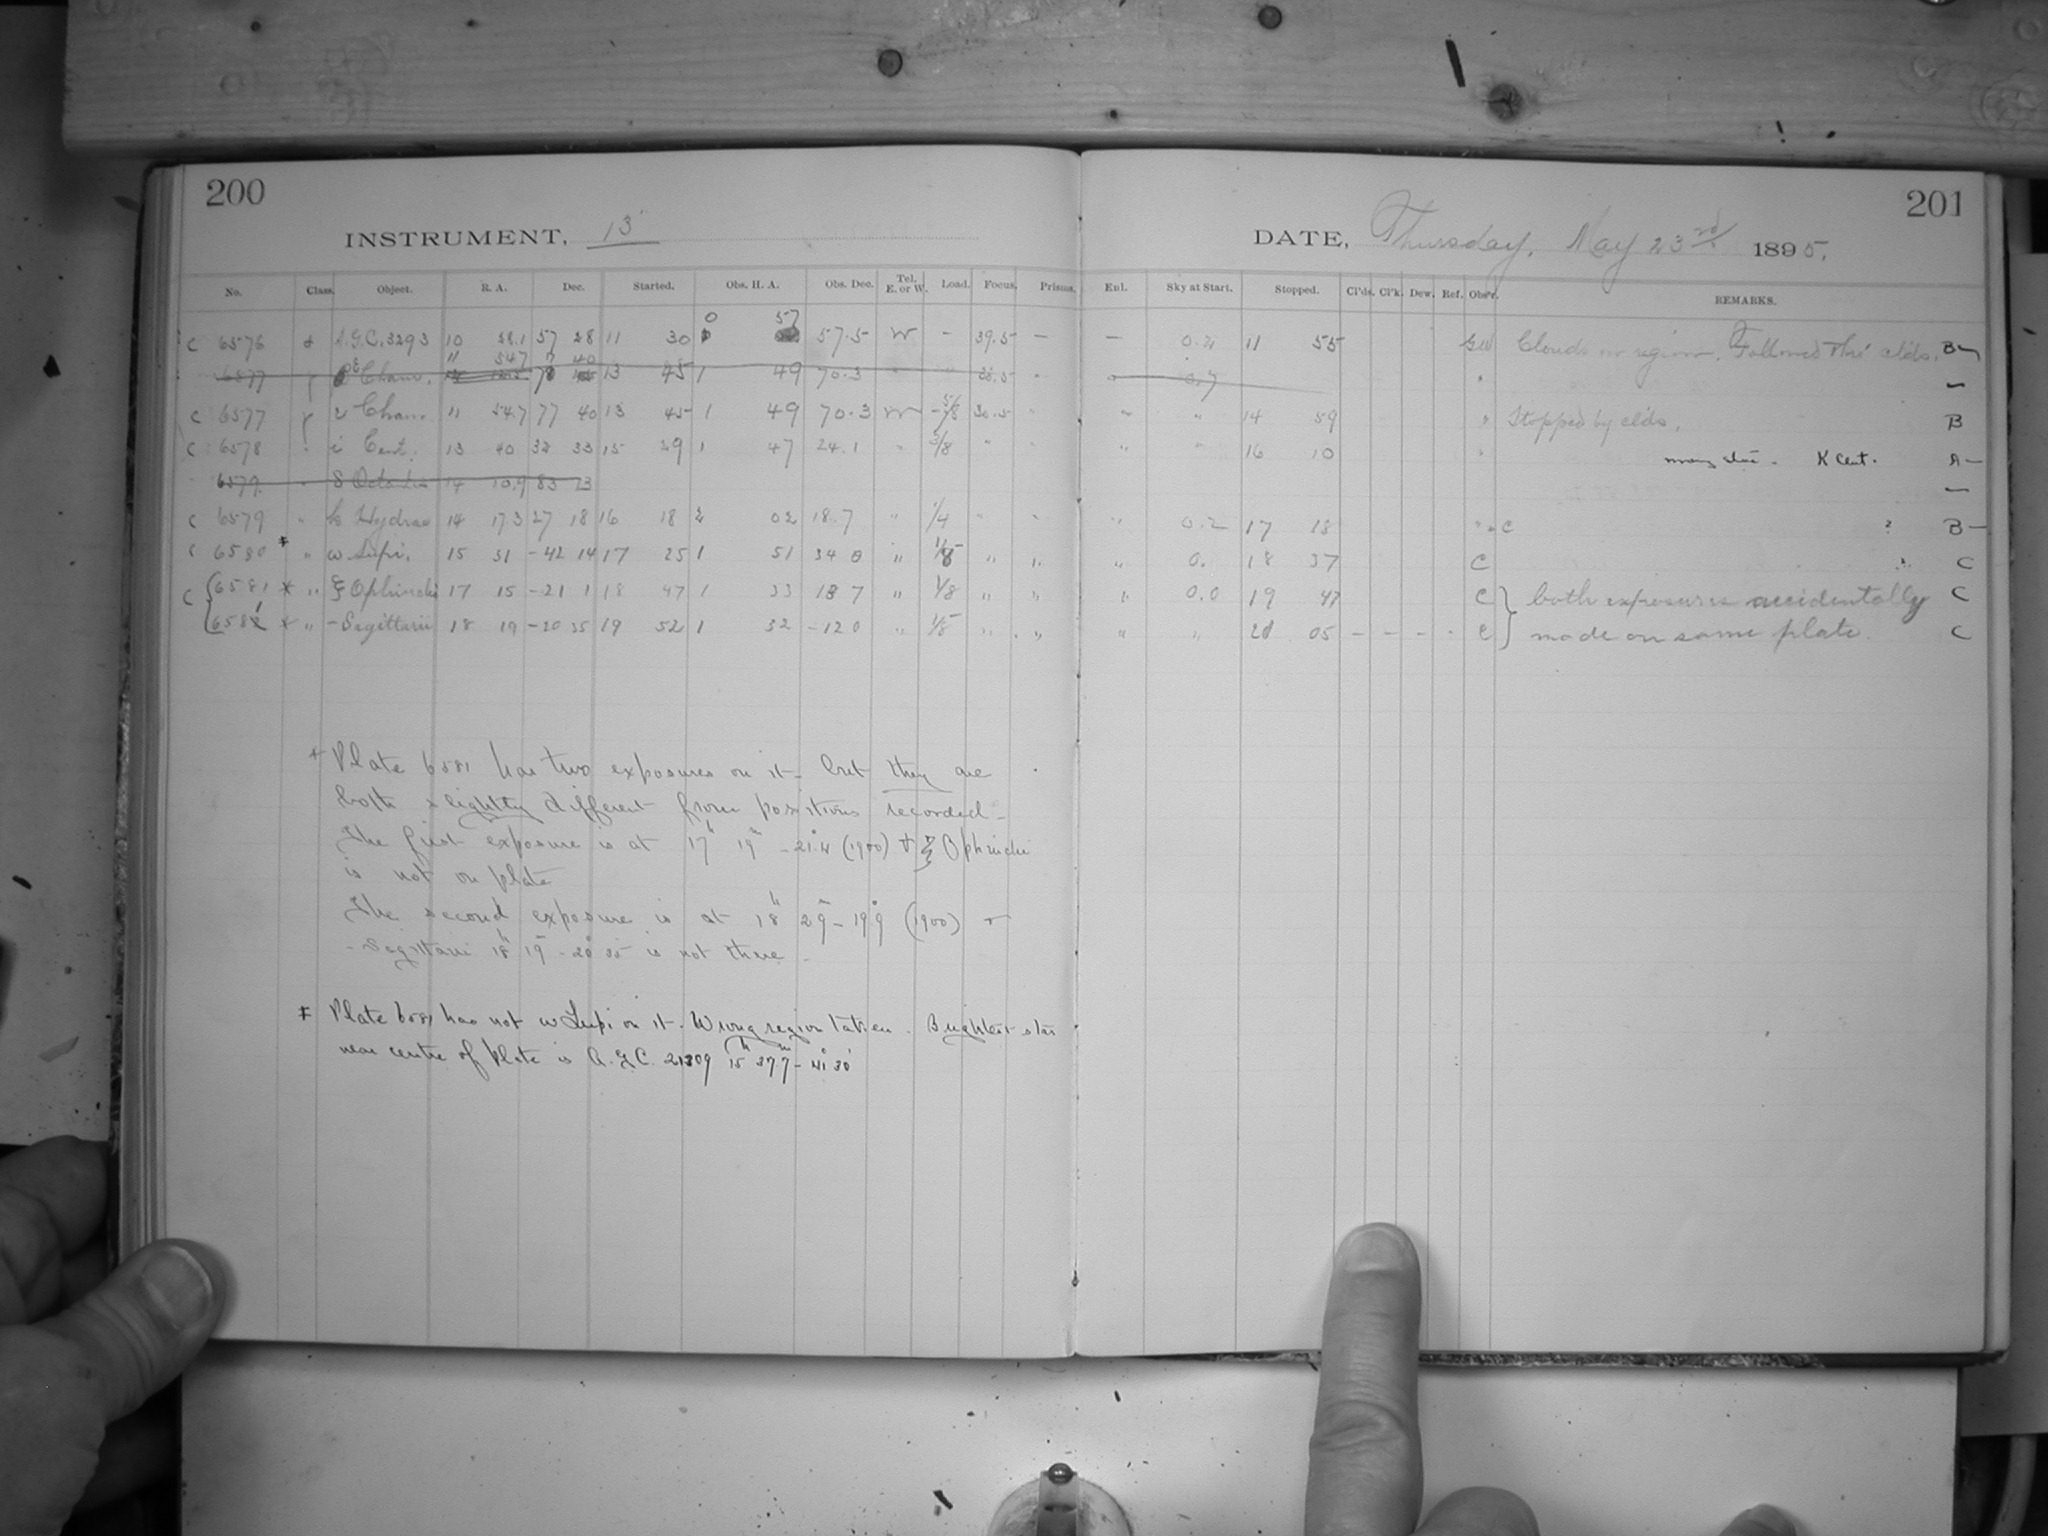 200
201
INSTRUMENT, 13
DATE, Thursday, May 23rd 1895.
No. Class. Object. R. A. Dec. Started. Obs. H. A. Obs. Dec. Tel. E. or W. Load. Focus. Prisms. Enl. Sky at Start. Stopped. Cl'ds. Cl'k. Dew. Ref. Obs'r. REMARKS.
0 57
C 6576 N.G.C. 3293 10 28.1 57 28 11 30 57.5 W - 39.5 - - 11 55 Clouds in region. Followed thro' clds. B-
" 54.7 " 40
6577 Cham. 13 45 1 49 70.3 " -
C 6577 Cham. 11 54.7 77 40 13 45 1 49 70.3 W " " 14 59 " Stopped by clds. B
C 6578 i Cent. 13 40 32 33 15 29 1 47 24.1 " 3/8 " " " " 16 10 " K Cent. A-
6579 " δ Octantis 14 10.9 83 13 -
C 6579 " Hydrae 14 17.3 27 18 16 18 2 02 18.7 " 1/4 " " " 0.2 17 18 C ? B-
C 6580 ‡ " ω Lupi. 15 31 -42 14 17 25 1 51 34 0 " " " " 0. 18 37 C C
C 6581 * " ξ Ophiuchi 17 15 -21 1 18 47 1 33 18 7 " 1/8 " " " 0.0 19 47 C both exposures accidentally C
* " - Sagittarii 18 19 -20 35 19 52 1 32 -12 0 " " " " " 20 05 - - - - C made on same plate. C
* Plate 6581 has two exposures on it - but they are
both slightly different from positions recorded -
The first exposure is at 17h 19m -21°.4 (1900) & ξ Ophiuchi
is not on plate
The second exposure is at 18h 29m -19°.9 (1900) &
- Sagittarii 18h 19m -20° 35 is not there -
‡ Plate has not ω Lupi on it. Wrong region taken. Brightest star
near centre of plate is A.G.C. 21309 15h 37m.7 - 41° 30'